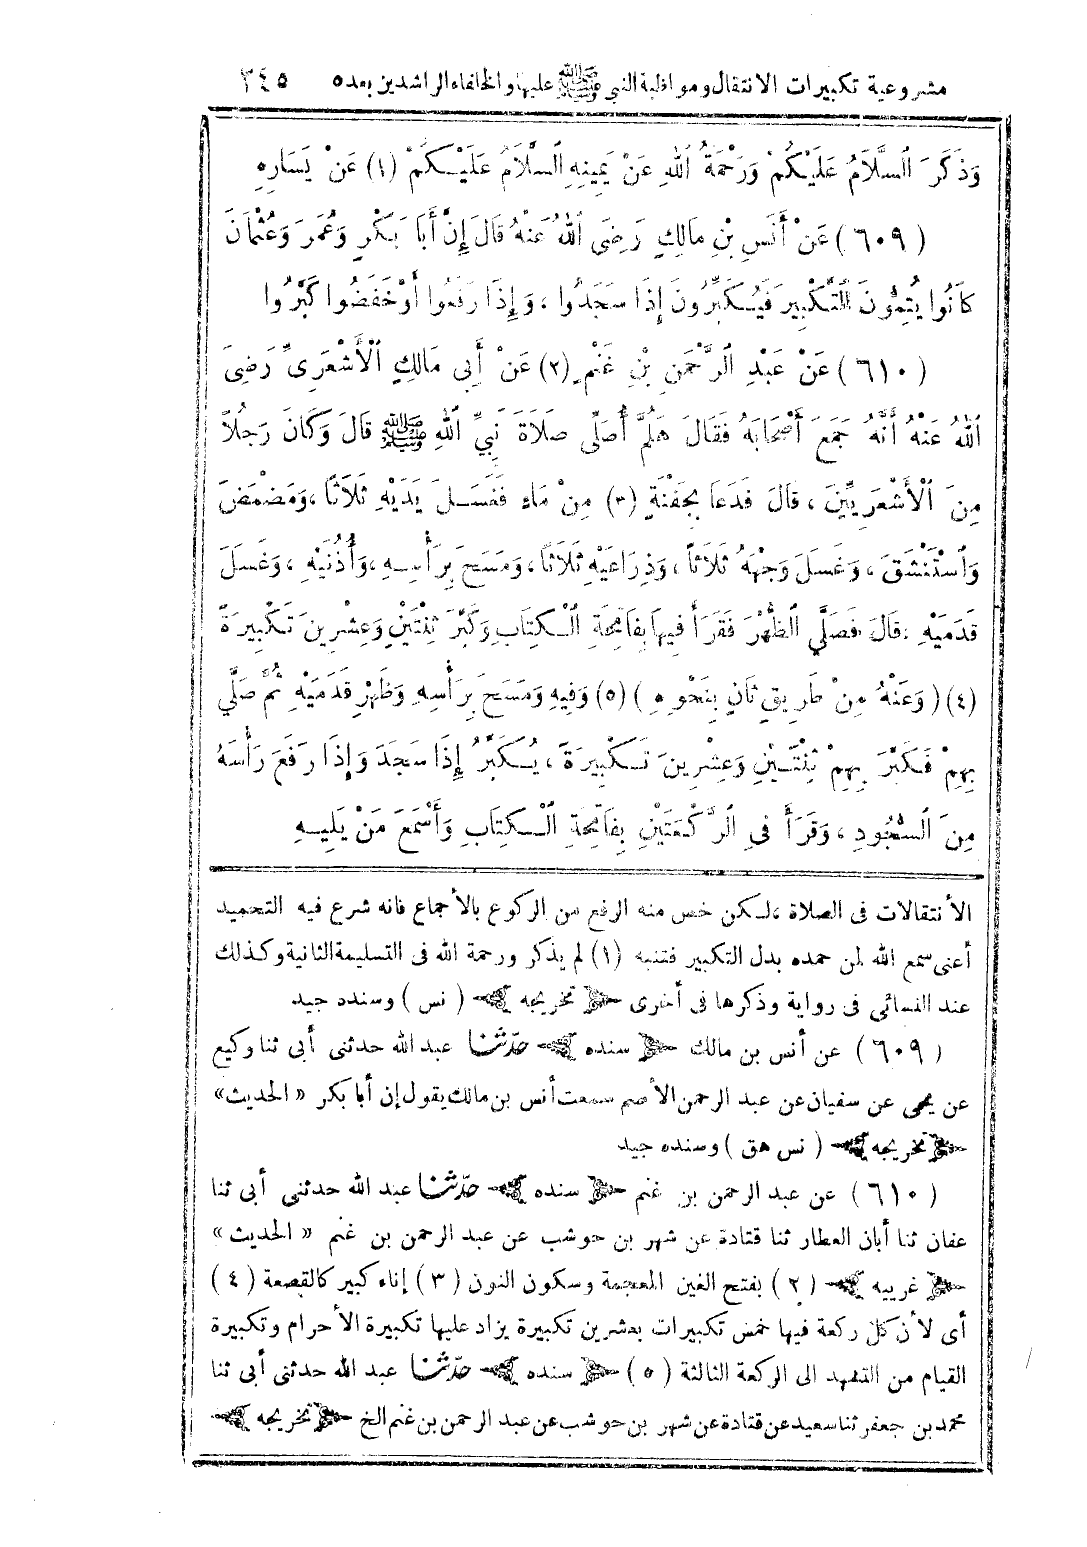 مشروعية تكبيرات الانتقال ومواظبة النبي ﷺ عليها والخلفاء الراشدين بعده ٣٤٥
وَذَكَرَ اَلسَّلَامُ عَلَيْكُمْ وَرَحْمَةُ اَللهِ عَنْ يَمِينِهِ اَلسَّلَامُ عَلَيْكُمْ (١) عَنْ يَسَارِهِ
(٦٠٩) عَنْ أَنَسِ بْنِ مَالِكٍ رَضِيَ اَللهُ عَنْهُ قَالَ إِنَّ أَبَا بَكْرٍ وَعُمَرَ وَعُثْمَانَ
كَانُوا يُتِمُّونَ اَلتَّكْبِيرَ فَيُكَبِّرُونَ إِذَا سَجَدُوا ، وَإِذَا رَفَعُوا أَوْ خَفَضُوا كَبَّرُوا
(٦١٠) عَنْ عَبْدِ اَلرَّحْمَنِ بْنِ غَنْمٍ (٢) عَنْ أَبِي مَالِكٍ اَلْأَشْعَرِيِّ رَضِيَ
اَللهُ عَنْهُ أَنَّهُ جَمَعَ أَصْحَابَهُ فَقَالَ هَلُمَّ أُصَلِّى صَلَاةَ نَبِيِّ اَللهِ ﷺ قَالَ وَكَانَ رَجُلاً
مِنَ اَلْأَشْعَرِيِّينَ ، قَالَ فَدَعَا بِجَفْنَةٍ (٣) مِنْ مَاءٍ فَغَسَلَ يَدَيْهِ ثَلَاثًا ، وَمَضْمَضَ
وَاَسْتَنْشَقَ ، وَغَسَلَ وَجْهَهُ ثَلَاثًا ، وَذِرَاعَيْهِ ثَلَاثًا ، وَمَسَحَ بِرَأْسِهِ ، وَأُذُنَيْهِ ، وَغَسَلَ
قَدَمَيْهِ ، قَالَ فَصَلَّي اَلظُّهْرَ فَقَرَأَ فِيهَا بِفَاتِحَةِ اَلْكِتَابِ وَكَبَّرَ ثِنْتَيْنِ وَعِشْرِينَ تَكْبِيرَةً
(٤) (وَعَنْهُ مِنْ طَرِيقٍ ثَانٍ بِنَحْوِهِ) (٥) وَفِيهِ وَمَسَحَ بِرَأْسِهِ وَظَهْرِ قَدَمَيْهِ ثُمَّ صَلَّي
بِهِمْ فَكَبَّرَ بِهِمْ ثِنْتَيْنِ وَعِشْرِينَ تَكْبِيرَةً ، يُكَبِّرُ إِذَا سَجَدَ وَإِذَا رَفَعَ رَأْسَهُ
مِنَ اَلسُّجُودِ ، وَقَرَأَ فِي اَلرَّكْعَتَيْنِ بِفَاتِحَةِ اَلْكِتَابِ وَأَسْمَعَ مَنْ يَلِيهِ
الأنتقالات فى الصلاة ، لكن خص منه الرفع من الركوع بالأجماع فانه شرع فيه التحميد
أعنى سمع الله لمن حمده بدل التكبير فتنبه (١) لم يذكر ورحمة الله فى التسليمة الثانية وكذلك
عند النسائي فى رواية وذكرها فى أخرى ﴿ تخريجه ﴾ (نس) وسنده جيد
(٦٠٩) عن أنس بن مالك ﴿ سنده ﴾ حدّثنا عبد الله حدثنى أبى ثنا وكيع
عن يحيى عن سفيان عن عبد الرحمن الأصم سمعت أنس بن مالك يقول إن أبا بكر « الحديث »
﴿ تخريجه ﴾ (نس هق) وسنده جيد
(٦١٠) عن عبد الرحمن بن غنم ﴿ سنده ﴾ حدّثنا عبد الله حدثنى أبى ثنا
عفان ثنا أبان العطار ثنا قتادة عن شهر بن حوشب عن عبد الرحمن بن غنم « الحديث »
﴿ غريبه ﴾ (٢) بفتح الغين المعجمة وسكون النون (٣) إناء كبير كالقصعة (٤)
أى لأن كل ركعة فيها خمس تكبيرات بعشرين تكبيرة يزاد عليها تكبيرة الأحرام وتكبيرة
القيام من التشهد الى الركعة الثالثة (٥) ﴿ سنده ﴾ حدّثنا عبد الله حدثنى أبى ثنا
محمد بن جعفر ثنا سعيد عن قتادة عن شهر بن حوشب عن عبد الرحمن بن غنم الخ ﴿ تخريجه ﴾